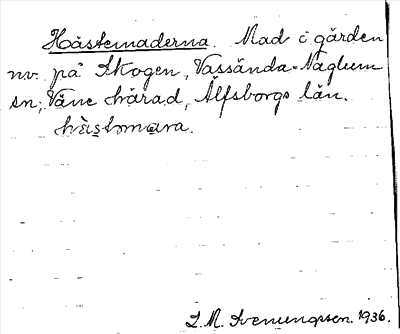 Hästemaderna. Mad i gården
nv. på Skogen, Vassända-Naglum
sn; Väne härad, Älfsborgs län.
hàstmara.
1936.